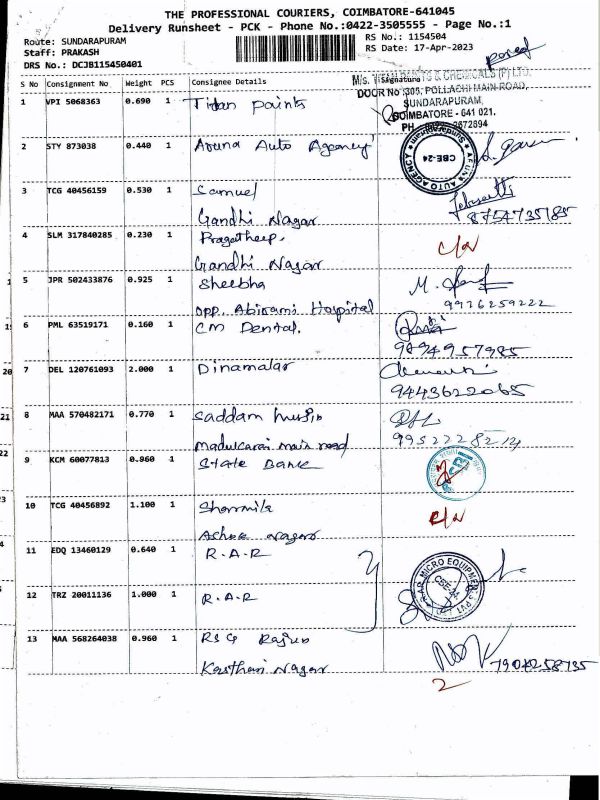 THE PROFESSIONAL COURIERS, COIMBATORE-641045
Delivery Runsheet - PCK - Phone No.:0422-3505555 - Page No.:1
Route: SUNDARAPURAM
Staff: PRAKASH
DRS No.: DCJB115450401
RS No.: 1154504
RS Date: 17-Apr-2023
S No Consignment No Weight PCS Consignee Details Signature
& CHEMICALS (P) LTD.
DOOR No 305, POLLACHI MAIN ROAD,
SUNDARAPURAM,
COIMBATORE - 641 021.
1 VPI 5068363 0.690 1 Titan paints
2 STY 873038 0.440 1 Aruna Auto Agency
CBE-24
3 TCG 40456159 0.530 1 Samuel
Gandhi Nagar
8754735185
4 SLM 317840285 0.230 1 Pragatheep.
Gandhi Nagar
5 JPR 502433876 0.925 1 Sheebha
opp. Abirami Hospital
9976259222
6 PML 63519171 0.160 1 CM Dental.
9894957985
7 DEL 120761093 2.000 1 Dinamalar
9443622065
8 MAA 570482171 0.770 1 Saddam
Madukarai main road
9 KCM 60077813 0.960 1 State Bank
10 TCG 40456892 1.100 1 Sharmila
Nagar
11 EDQ 13460129 0.640 1 R.A.R
12 TRZ 20011136 1.000 1 R.A.R
MICRO EQUIPMENTS PVT
13 MAA 568264038 0.960 1
Nagar
2